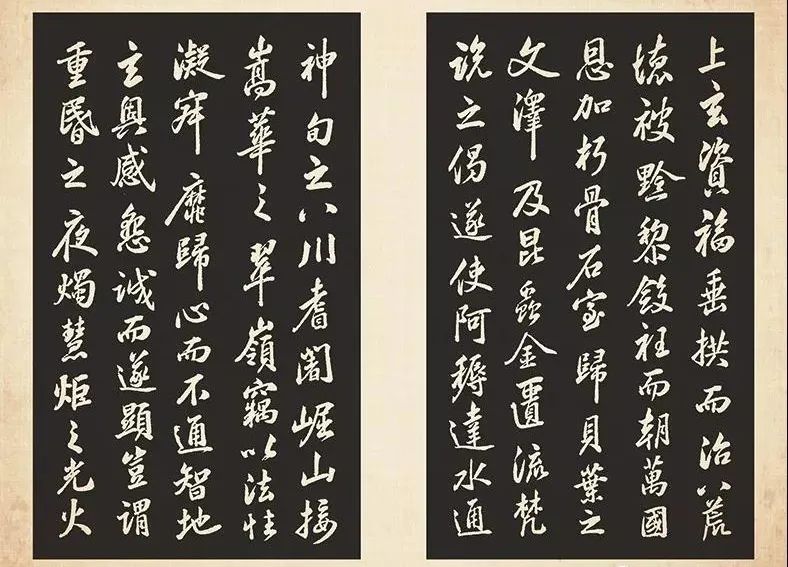 上玄資福垂拱而治八荒
德被黔黎斂衽而朝萬國
恩加朽骨石室歸貝葉之
文澤及昆蟲金匱流梵
說之偈遂使阿耨達水通
神甸之八川耆闍崛山接
嵩華之翠嶺竊以法性
凝寂靡歸心而不通智地
玄奧感懇誠而遂顯豈謂
重昏之夜燭慧炬之光火